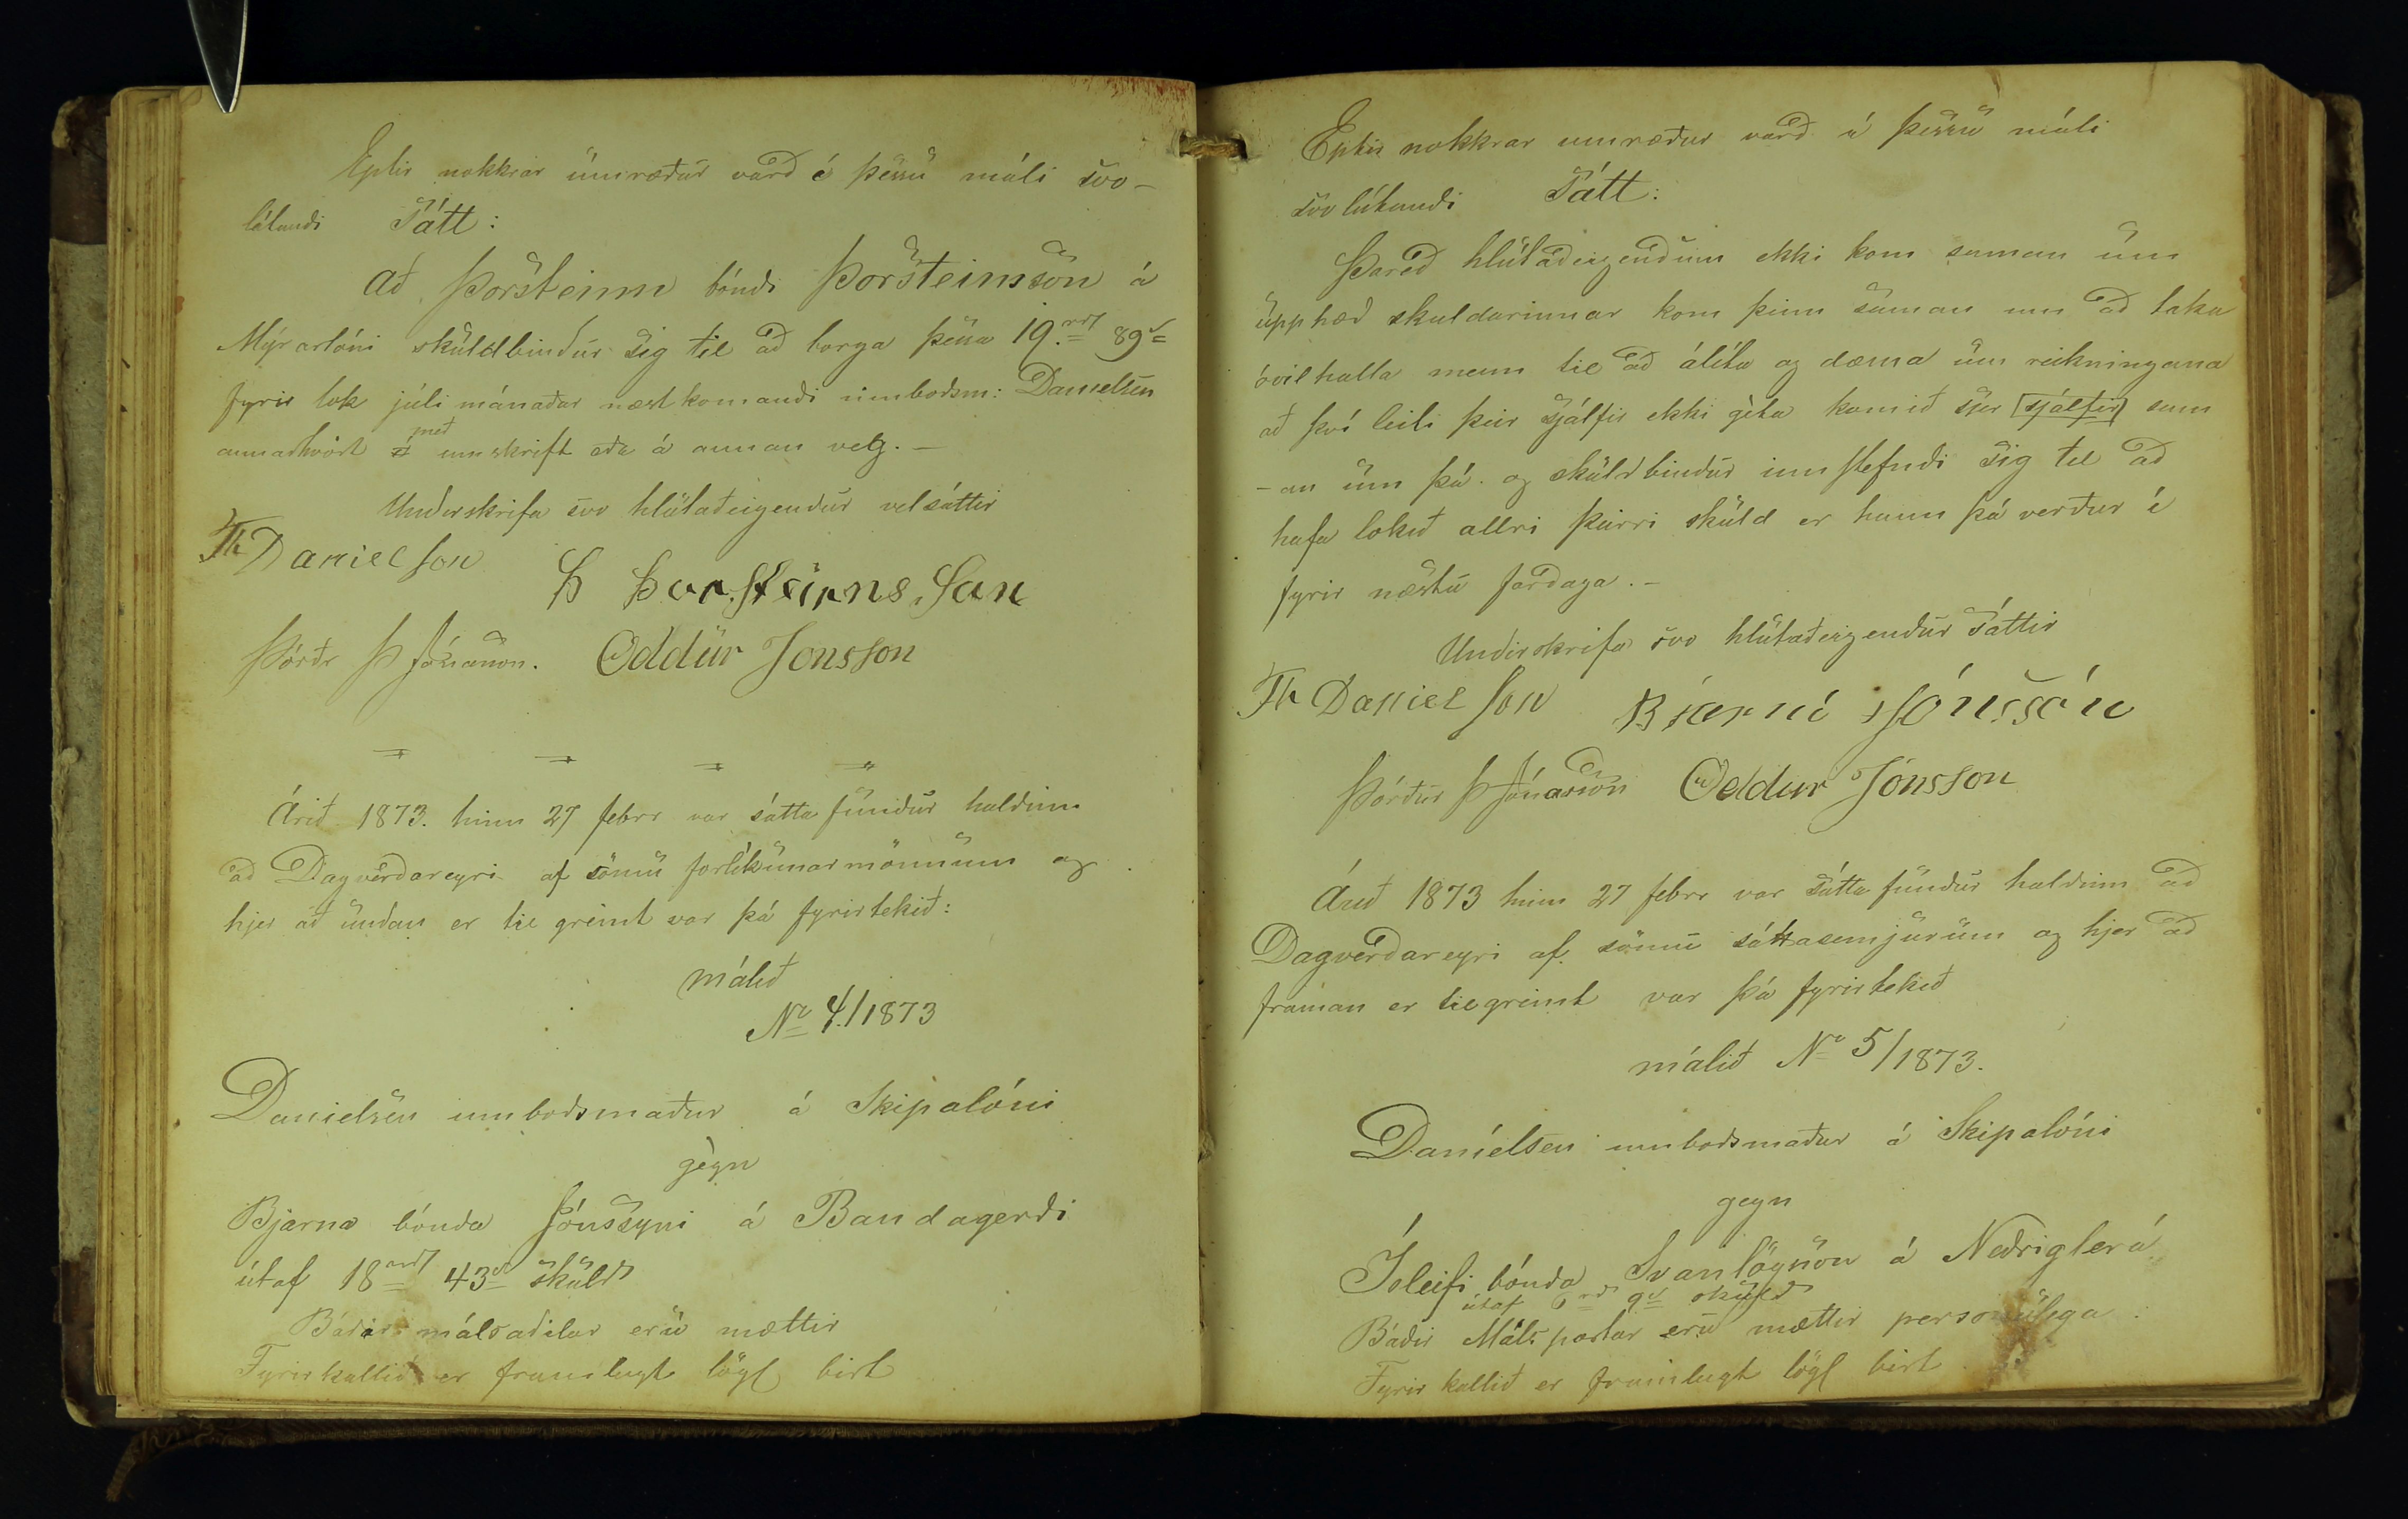 Eptir nokkrar umræður varð í þessu máli svo-
látandi Sátt:
Að Þorsteinn bóndi Þorsteinsson á
Mýrarlóni skuldbindur sig til að borga þessa 19 rd 89 s
fyrir lok júli mánaðar næstkomandi umboðsm: Danielsen
annaðhvört með innskrift eða á annan veg. —
Underskrifa svo hlutaðeigendur velsáttir
Th Danielson Þ Þorsteinsson
Þórðr Þ Jónasson. Oddur Jonsson
Árið 1873. hinn 27 febrr var sáttafundur haldinn
að Dagverðareyri af sömu forlikunarmönnum og
hjer að undan er til greint var þá fyrirtekið:
málið
No 4./1873
Danielsen umboðsmaður á Skipalóni
gegn
Bjarna bónda Jónssyni á Bandagerði
útaf 18 rd 43 s skuld
Báðir málsaðilar eru mættir
Fyrirkallið er framlagt lögl birt
Eptir nokkrar umræður varð í þessu máli
svo látandi Sátt:
Þareð hlutaðeigendum ekki kom saman um
upphæð skuldarinnar kom þeim saman um að taka
óvilhalla menn til að álíta og dæma um reikningana
að því leiti þeir sjálfir ekki geta komið sjer [sjálfir] sam
-an um þá. og skuldbindur innstefndi sig til að
hafa lokið allri þeirri skuld er hann þá verður í
fyrir næstu fardaga. —
Underskrifa svo hlutaðeigendur sáttir
Th Danielson Bjarni Jónsson
Þórður Þ Jónasson Oddur Jónsson
Árið 1873 hinn 27 febrr var sáttafundur haldinn að
Dagverðareyri af sömu sáttasemjurum og hjer að
framan er tilgreint var þá fyrirtekið
málið No 5/1873.
Daníelsen umboðsmaður á Skipalóni
gegn
Ísleifi bónda Svanlögsson á Neðriglerá
útaf 6 rd 9 s skuld
Báðir Málspartar eru mættir personulega
Fyrirkallið er framlagt lögl birt